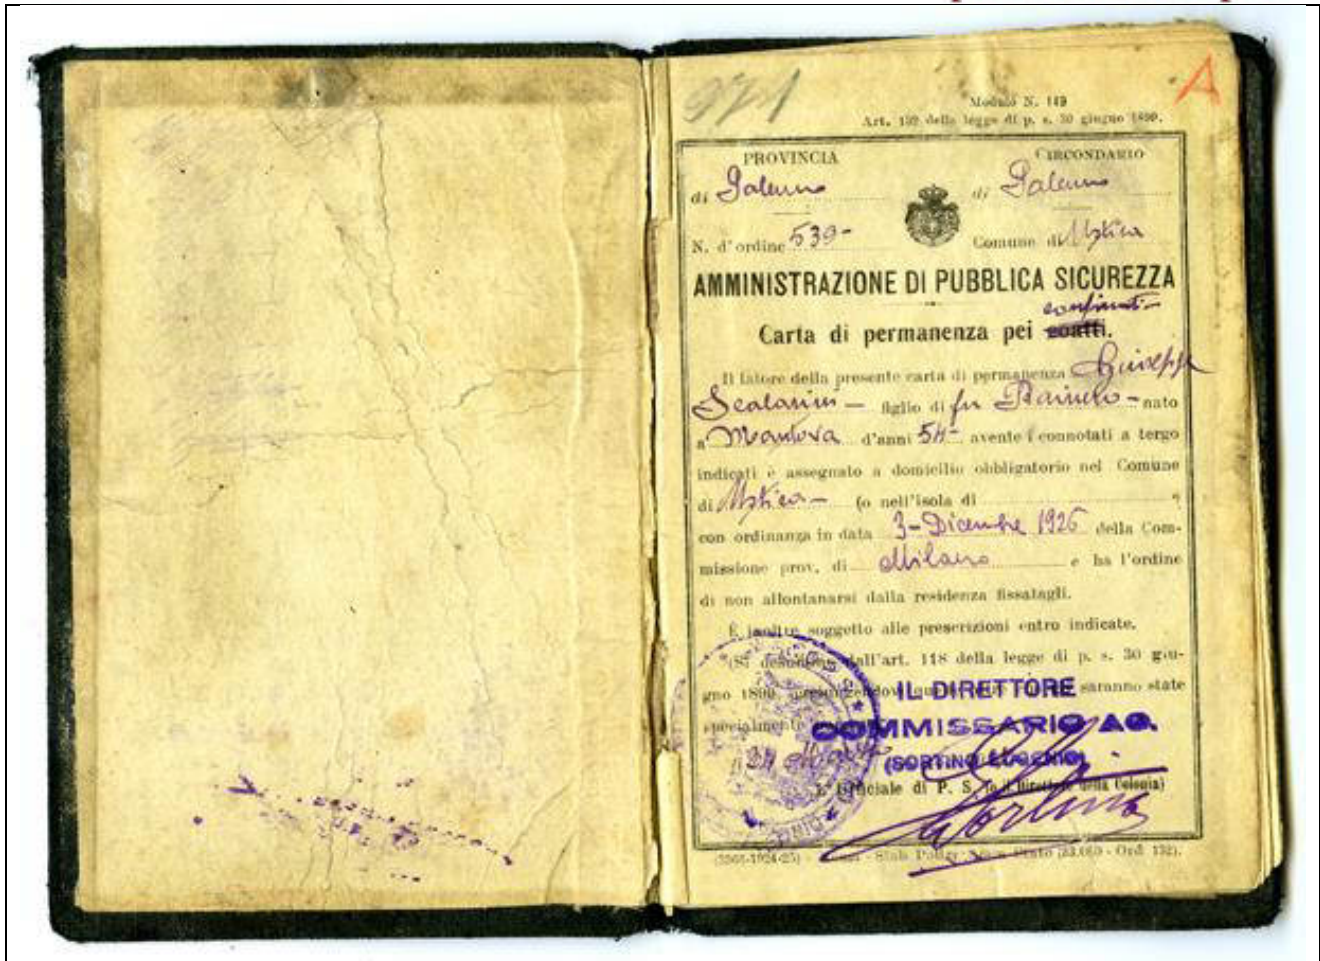 971
A
Modulo N. 149
Art. 132 della legge di p. s. 30 giugno 1889.
PROVINCIA
di Palermo
CIRCONDARIO
di Palermo
N. d'ordine 539-
Comune di Ustica
AMMINISTRAZIONE DI PUBBLICA SICUREZZA
confinati
Carta di permanenza pei coatti.
Il latore della presente carta di permanenza Giuseppe
Scalarini — figlio di fu Rainero — nato
a Mantova d'anni 54- avente i connotati a tergo
indicati è assegnato a domicilio obbligatorio nel Comune
di Ustica — (o nell'isola di
con ordinanza in data 3-Dicembre 1926 della Com-
missione prov. di Milano e ha l'ordine
di non allontanarsi dalla residenza fissatagli.
È inoltre soggetto alle prescrizioni entro indicate.
(Si dall'art. 118 della legge di p. s. 30 giu-
gno 1889, saranno state
specialmente
IL DIRETTORE
COMMISSARIO AG.
(SORTINO EUGENIO)
L'Ufficiale di P. S. (o il Direttore della Colonia)
Sortino
Stato Ord. 132).